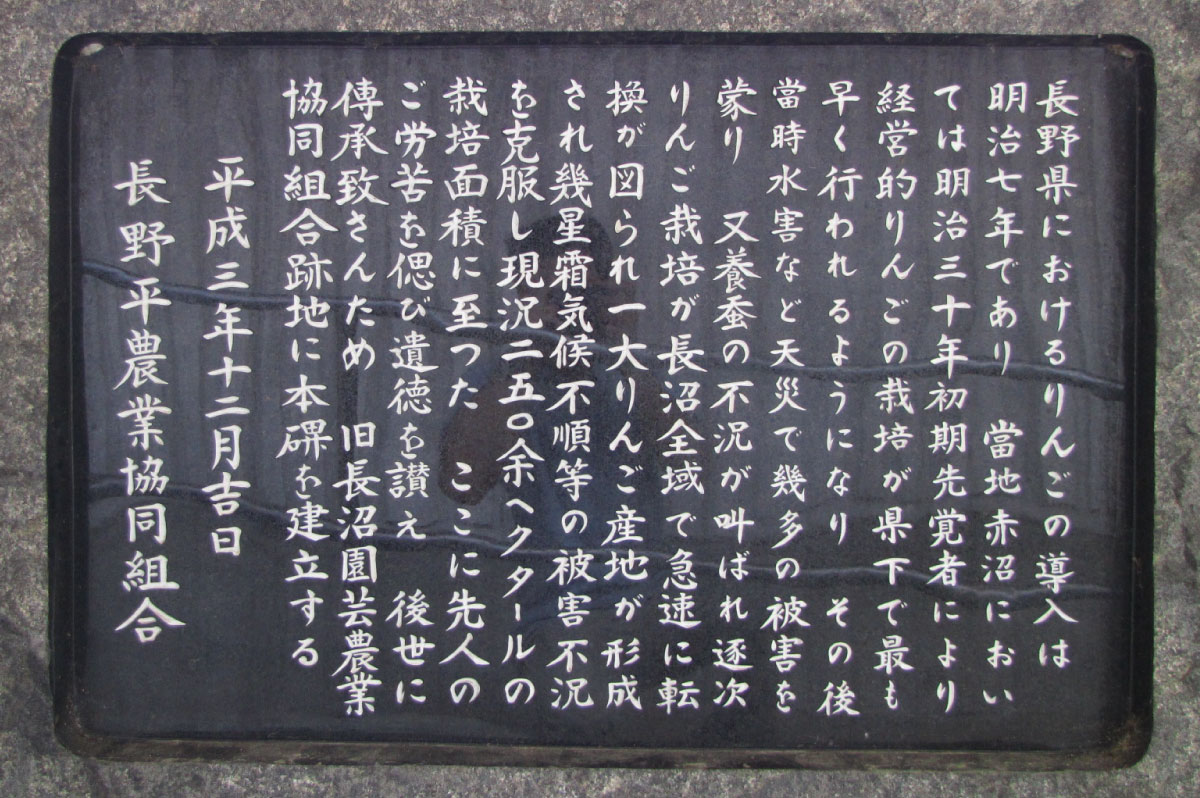 長野県におけるりんごの導入は
明治七年であり　當地赤沼におい
ては明治三十年初期先覚者により
経営的りんごの栽培が県下で最も
早く行われるようになり　その後
當時水害など天災で幾多の被害を
蒙り　又養蚕の不況が叫ばれ逐次
りんご栽培が長沼全域で急速に転
換が図られ一大りんご産地が形成
され幾星霜気候不順等の被害不況
を克服し現況二五〇余ヘクタールの
栽培面積に至つた　ここに先人の
ご労苦を偲び遺徳を讃え　後世に
傳承致さんため　旧長沼園芸農業
協同組合跡地に本碑を建立する
平成三年十二月吉日
長野平農業協同組合